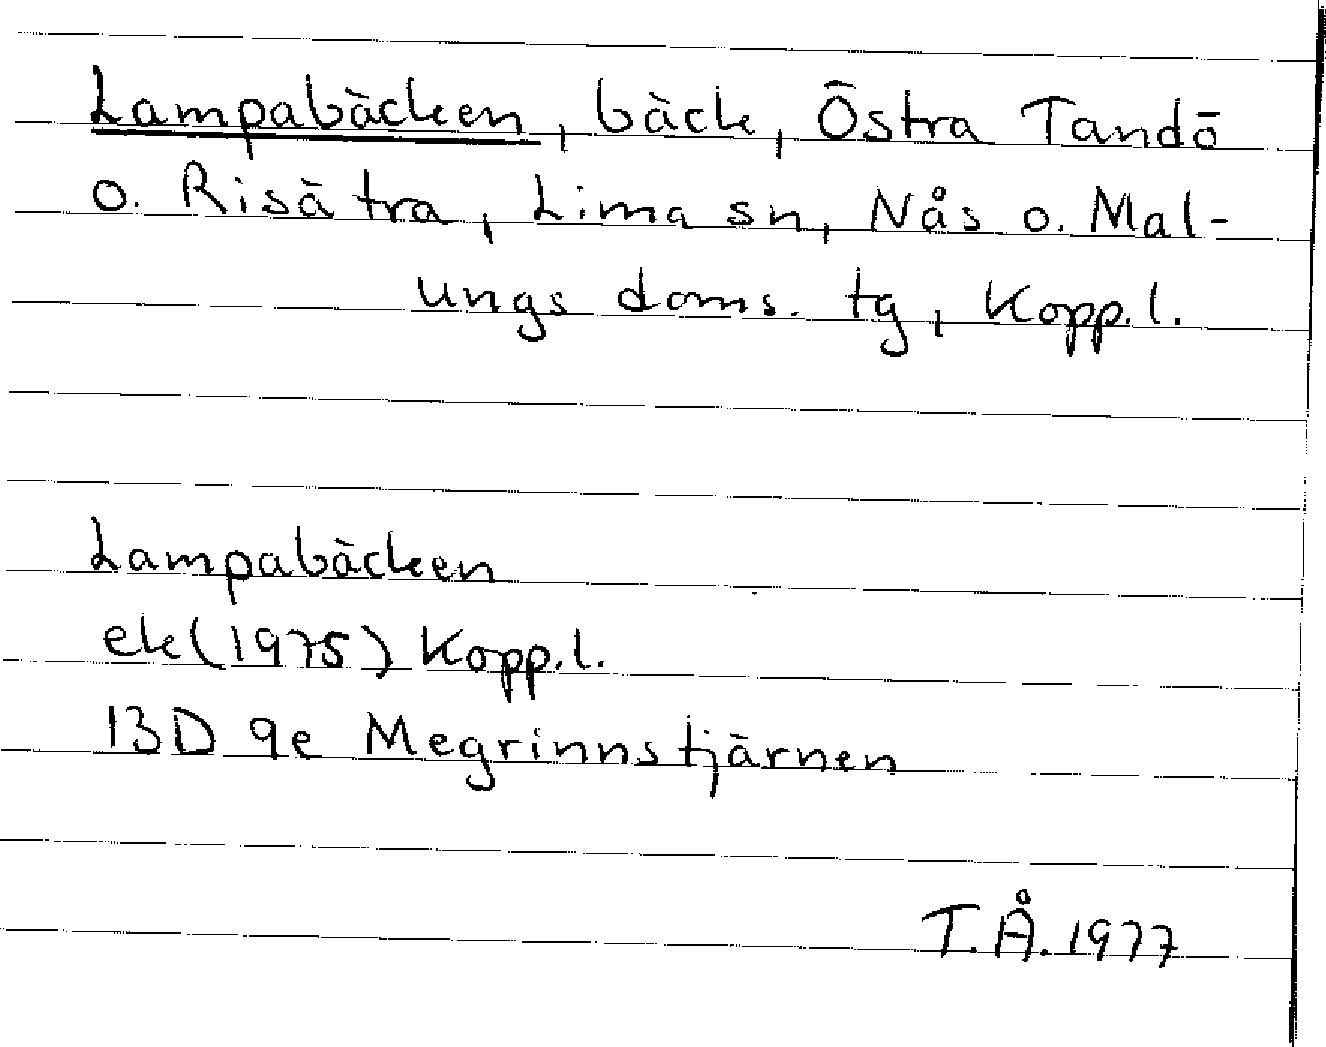 Lampabäcken, bäck, Östra Tandö
o. Risätra, Lima sn, Nås o. Mal-
ungs doms. tg, Kopp.l.
Lampabäcken
ek(1975) Kopp.l.
13D 9e Megrinnstjärnen
T.Å.1977